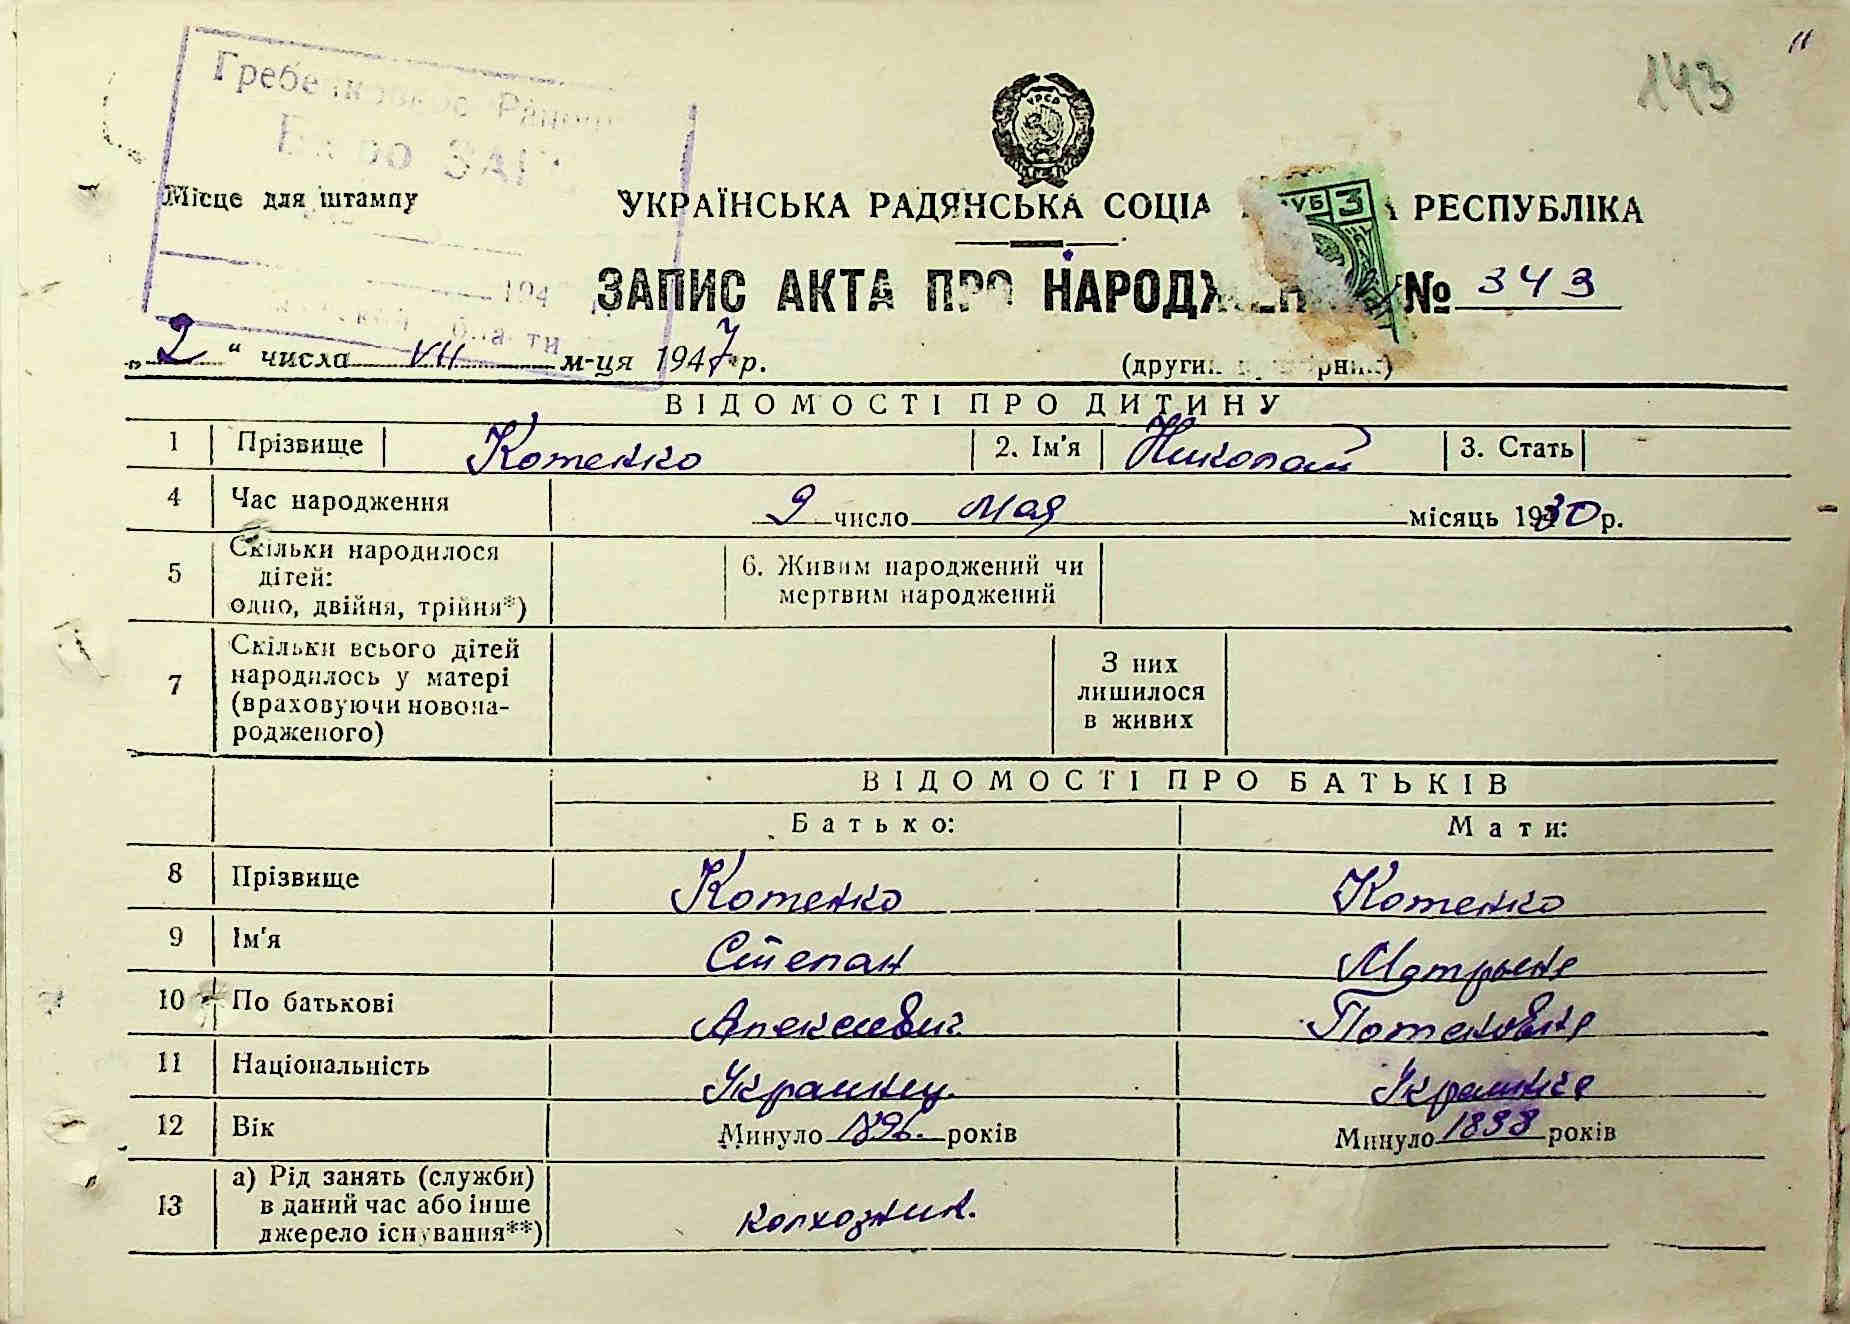 11
143
Бюро ЗАГС
УРСР
Місце для штампу
УКРАЇНСЬКА РАДЯНСЬКА СОЦІА А РЕСПУБЛІКА
РУБ 3
ЗАПИС АКТА ПРО НАРОДЖЕН № 343
194
„2“ числа VII м-ця 1947 р.
(другий примірник)
ВІДОМОСТІ ПРО ДИТИНУ
1 Прізвище Котенко 2. Ім'я Николай 3. Стать
4 Час народження 9 число Мая місяць 1930 р.
5 Скільки народилося дітей: одно, двійня, трійня*) 6. Живим народжений чи мертвим народжений
7 Скільки всього дітей народилось у матері (враховуючи новонародженого) З них лишилося в живих
ВІДОМОСТІ ПРО БАТЬКІВ
Батько: Мати:
8 Прізвище Котенко Котенко
9 Ім'я Степан Мотрына
10 По батькові Алексеевич
11 Національність Украинец Украинка
12 Вік Минуло 1896. років Минуло 1898 років
13 а) Рід занять (служби) в даний час або інше джерело існування**) колхозник.